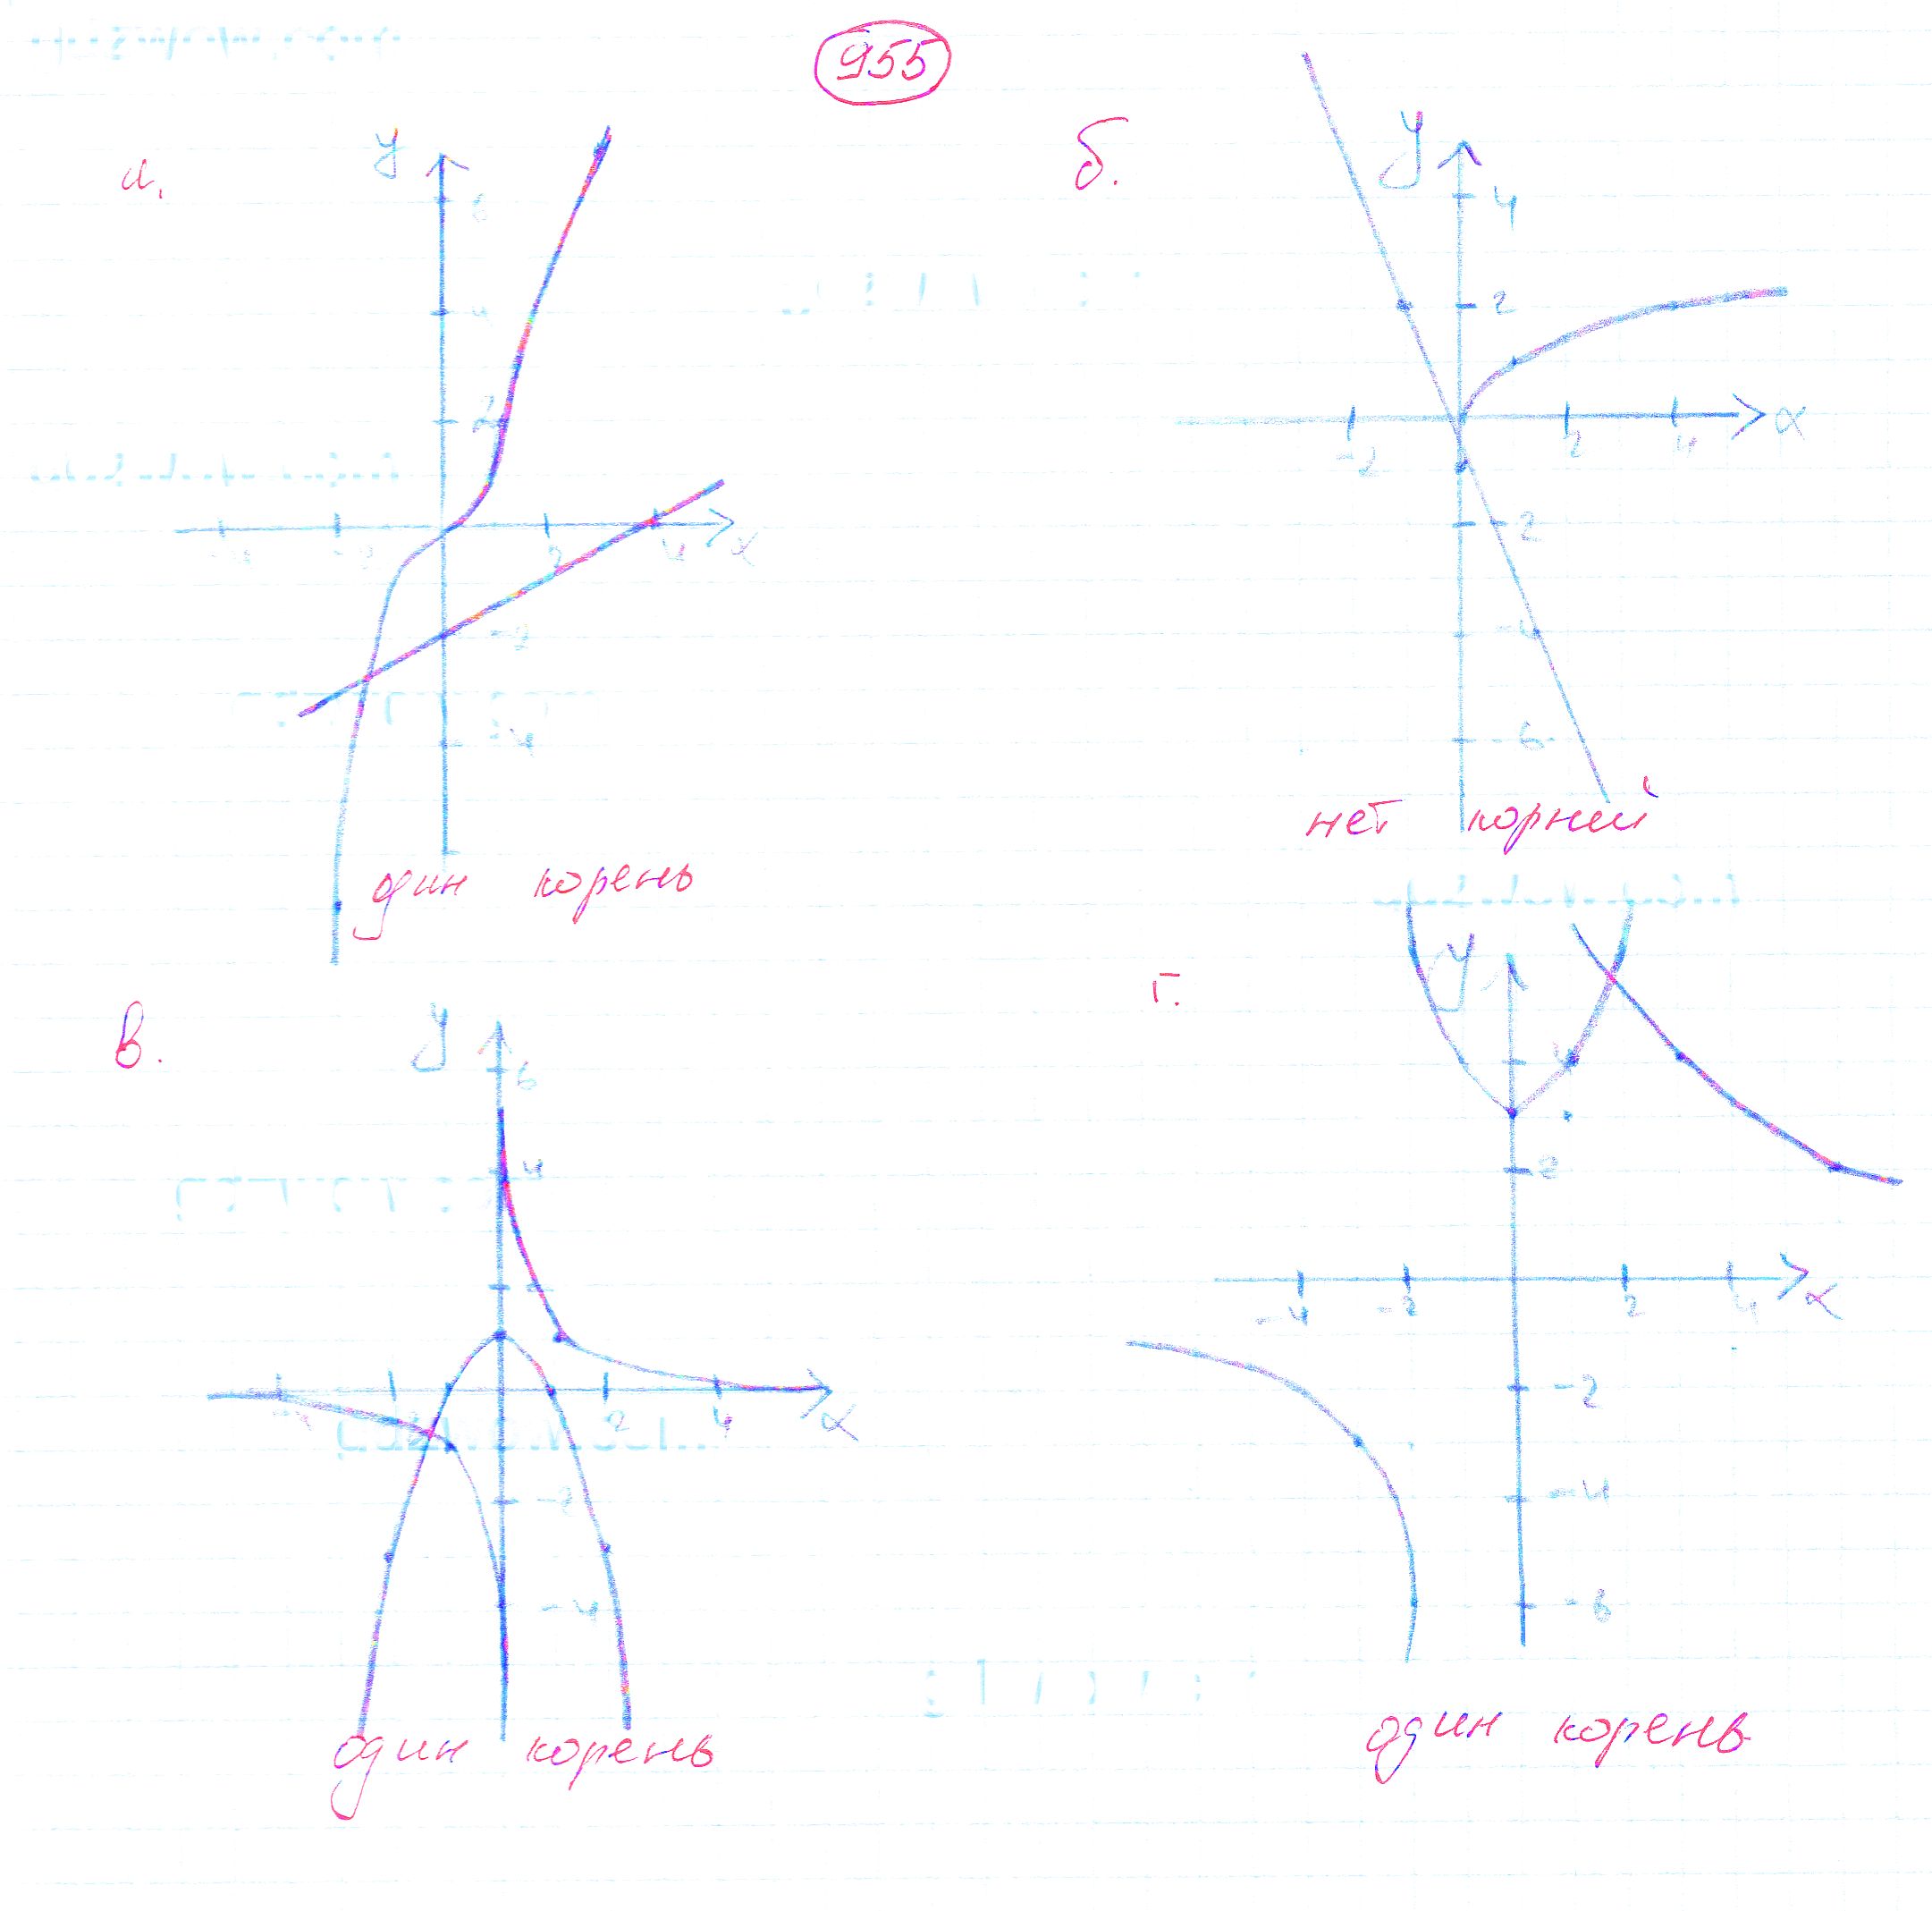 955
а.
y
6
4
2
-4
-2
2
4
x
-2
-4
один корень
б.
y
4
2
-2
2
4
x
-2
-4
-6
нет корней
в.
y
6
4
2
2
4
x
-2
-4
один корень
г.
y
4
2
-4
-2
2
4
x
-2
-4
-6
один корень